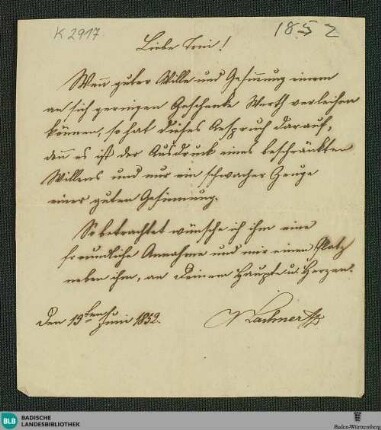 K 2917
1852
Liebe Freundin!
Wenn guter Wille und Gesinnung einem
an sich geringen Geschenke Werth verleihen
können, so hat dieses Anspruch darauf,
denn es ist der Ausdruck eines beschränkten
Willens und nur ein schwacher Zeuge
einer guten Gesinnung.
So betrachtet wünsche ich ihm eine
freundliche Annahme und mir einen Platz
neben ihm, an Deinem Haupte u Herzen.
den 13ten Juni 1852.
Lachner
BLB
BADISCHE
LANDESBIBLIOTHEK
Baden-Württemberg